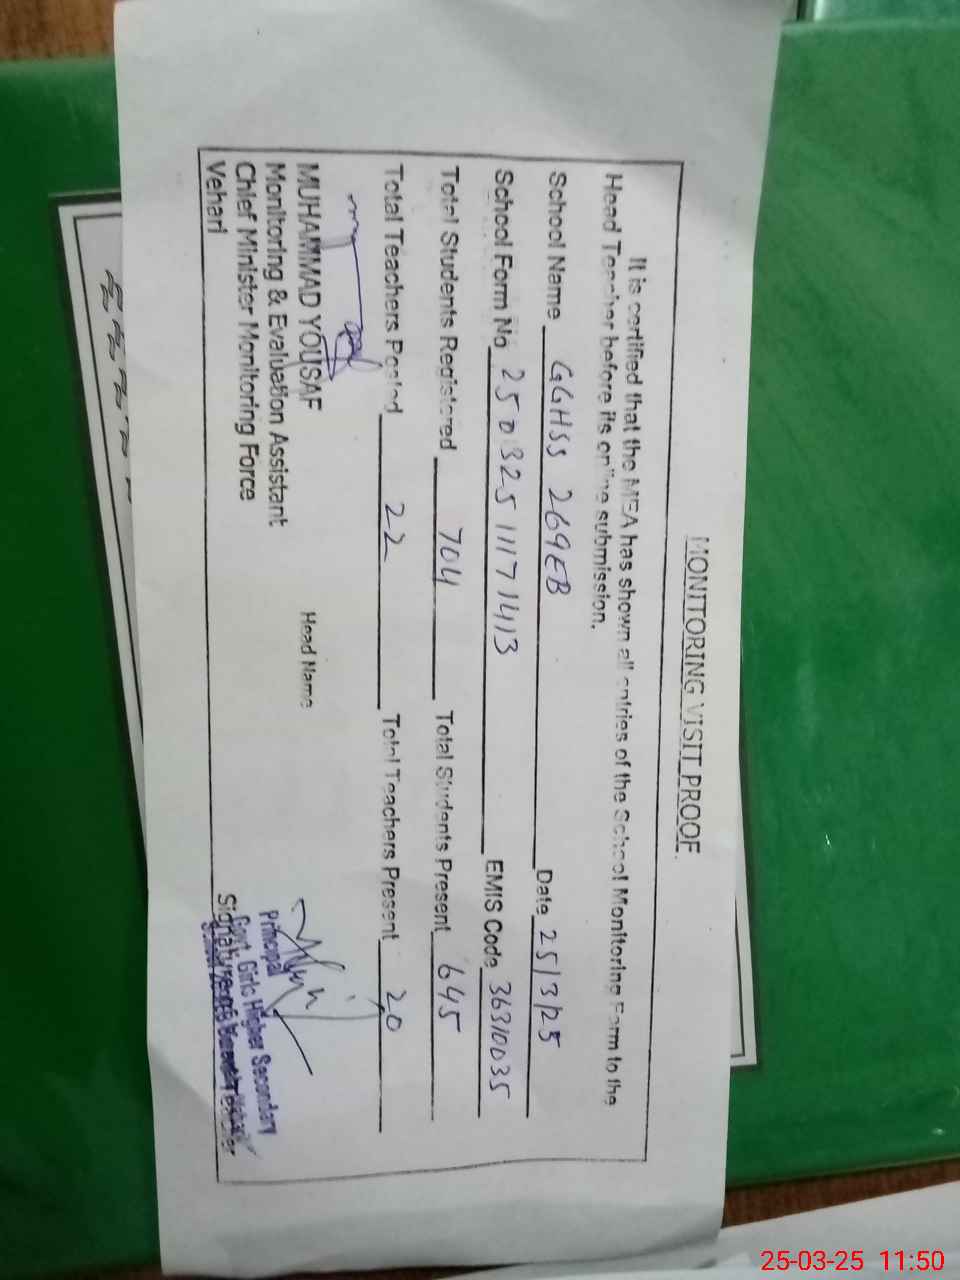 MONITORING VISIT PROOF.
It is certified that the MEA has shown all entries of the School Monitoring Form to the
Head Teacher before its online submission.
School Name GGHSS 269EB Date 25/3/25
School Form No 250325111171413 EMIS Code 36310035
Total Students Registered 704 Total Students Present 645
Total Teachers Posted 22 Total Teachers Present 20
MUHAMMAD YOUSAF Head Name
Monitoring & Evaluation Assistant
Chief Minister Monitoring Force
Vehari
Principal
Govt. Girls Higher Secondary
Signature of
25-03-25 11:50